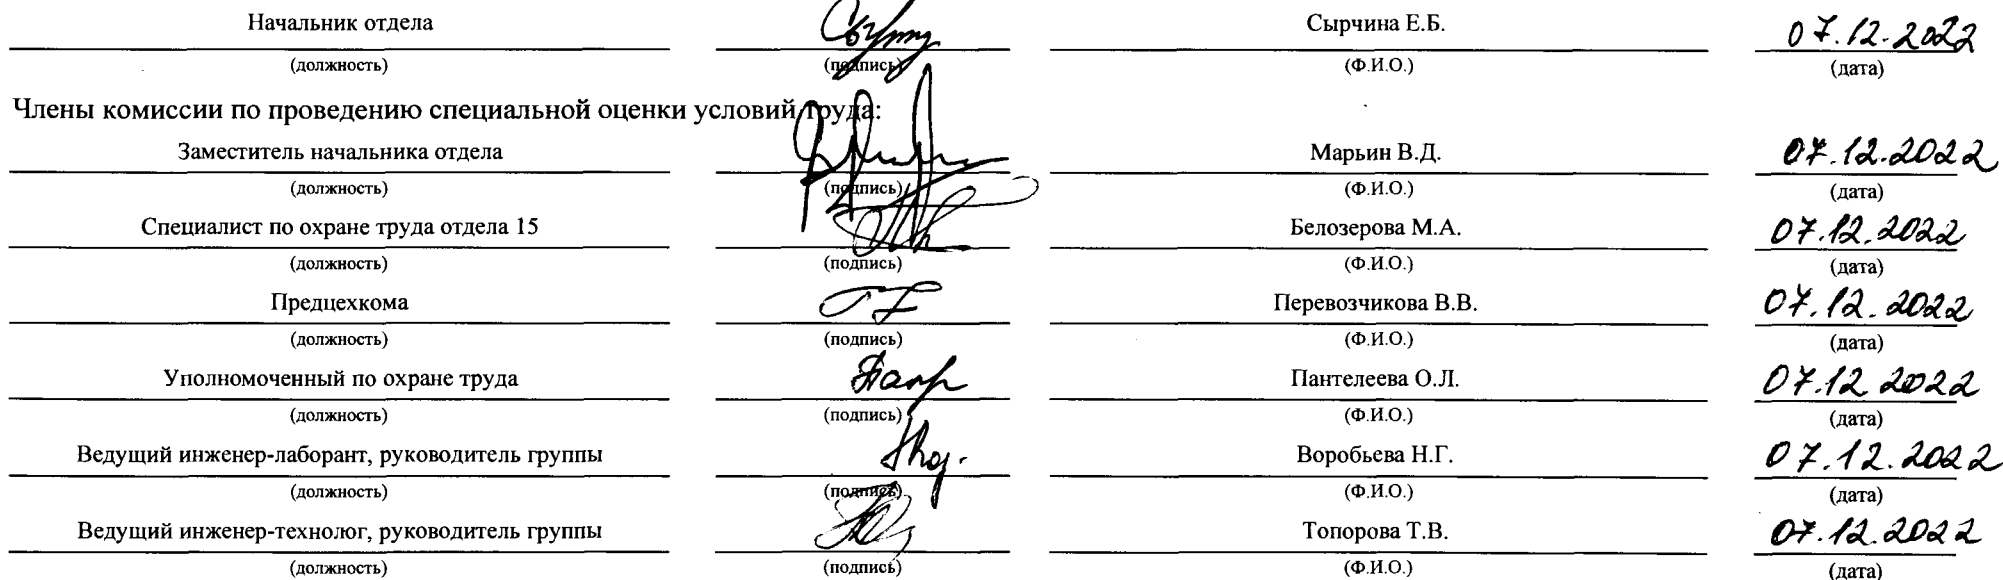 Начальник отдела Сырчина Е.Б. 07.12.2022
(должность) (подпись) (Ф.И.О.) (дата)
Члены комиссии по проведению специальной оценки условий труда:
Заместитель начальника отдела Марьин В.Д. 07.12.2022
(должность) (подпись) (Ф.И.О.) (дата)
Специалист по охране труда отдела 15 Белозерова М.А. 07.12.2022
(должность) (подпись) (Ф.И.О.) (дата)
Предцехкома Перевозчикова В.В. 07.12.2022
(должность) (подпись) (Ф.И.О.) (дата)
Уполномоченный по охране труда Пантелеева О.Л. 07.12 2022
(должность) (подпись) (Ф.И.О.) (дата)
Ведущий инженер-лаборант, руководитель группы Воробьева Н.Г. 07.12.2022
(должность) (подпись) (Ф.И.О.) (дата)
Ведущий инженер-технолог, руководитель группы Топорова Т.В. 07.12.2022
(должность) (подпись) (Ф.И.О.) (дата)